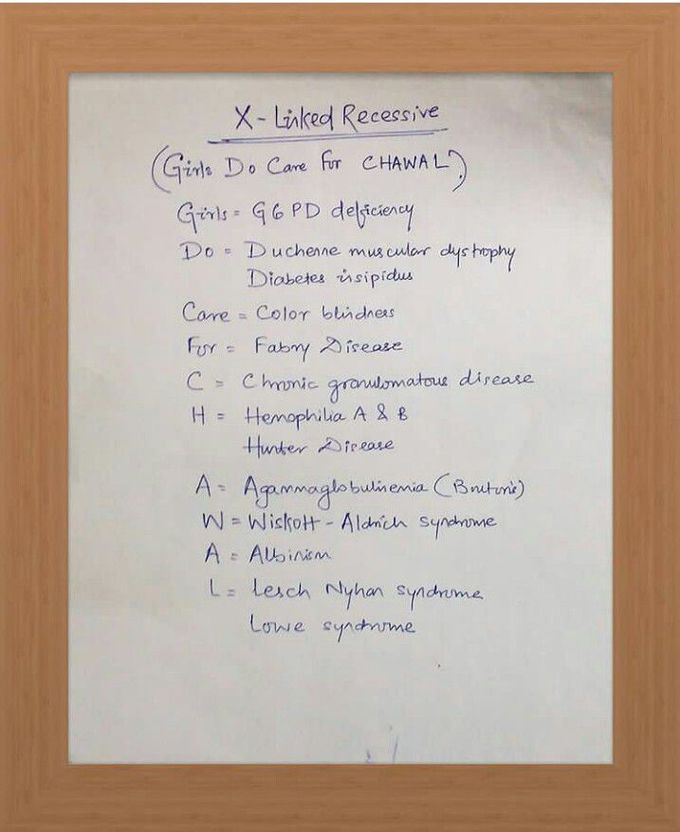 X-Linked Recessive
(Girls Do Care For CHAWAL).
Girls = G6PD deficiency
Do = Duchenne muscular dystrophy
Diabetes insipidus
Care = Color blindness
For = Fabry Disease
C = Chronic granulomatous disease
H = Hemophilia A & B
Hunter Disease
A = Agammaglobulinemia (Bruton's)
W = Wiskott-Aldrich syndrome
A = Albinism
L = Lesch Nyhan syndrome
Lowe syndrome